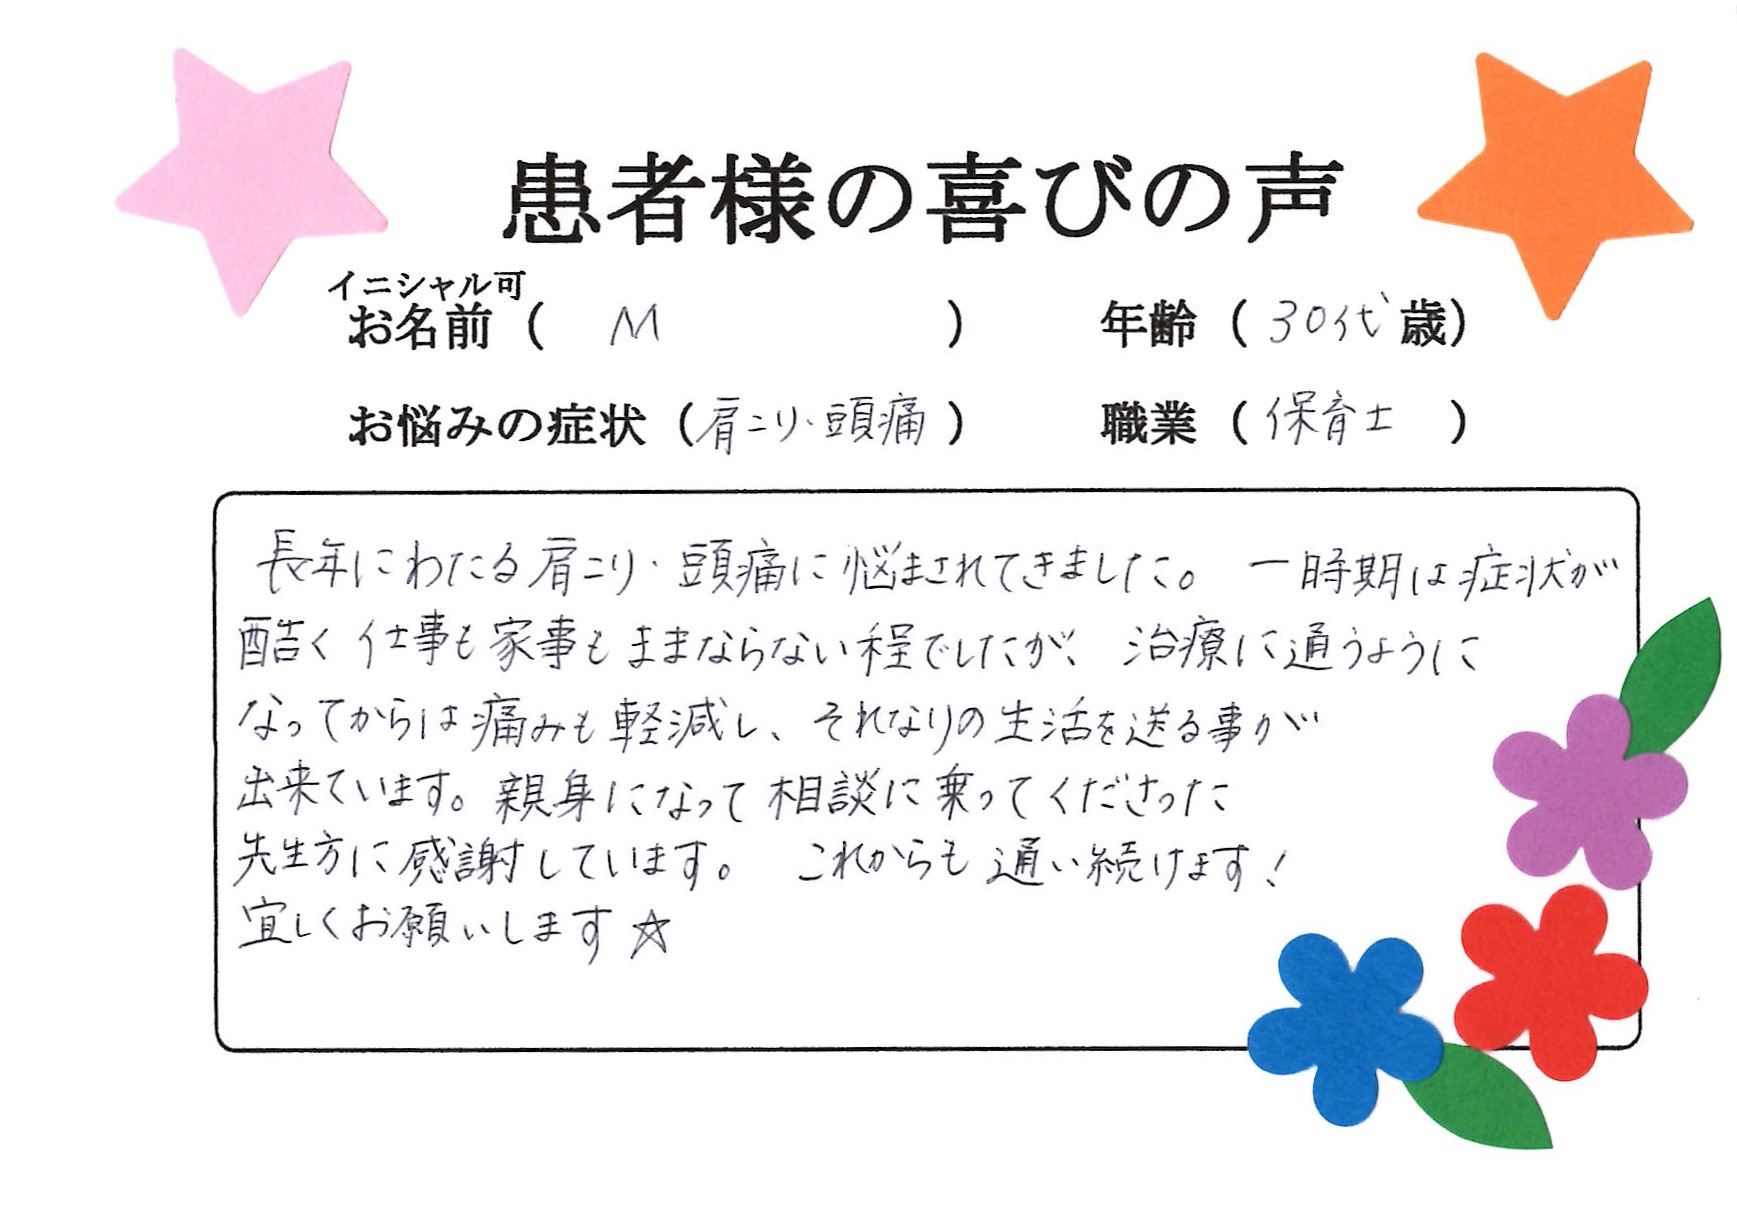 患者様の喜びの声
イニシャル可
お名前（ M ） 年齢（ 30代 歳）
お悩みの症状（肩こり・頭痛） 職業（ 保育士 ）
長年にわたる肩こり・頭痛に悩まされてきました。 一時期は症状が
酷く仕事も家事もままならない程でしたが、治療に通うように
なってからは痛みも軽減し、それなりの生活を送る事が
出来ています。親身になって相談に乗ってくださった
先生方に感謝しています。 これからも通い続けます！
宜しくお願いします☆